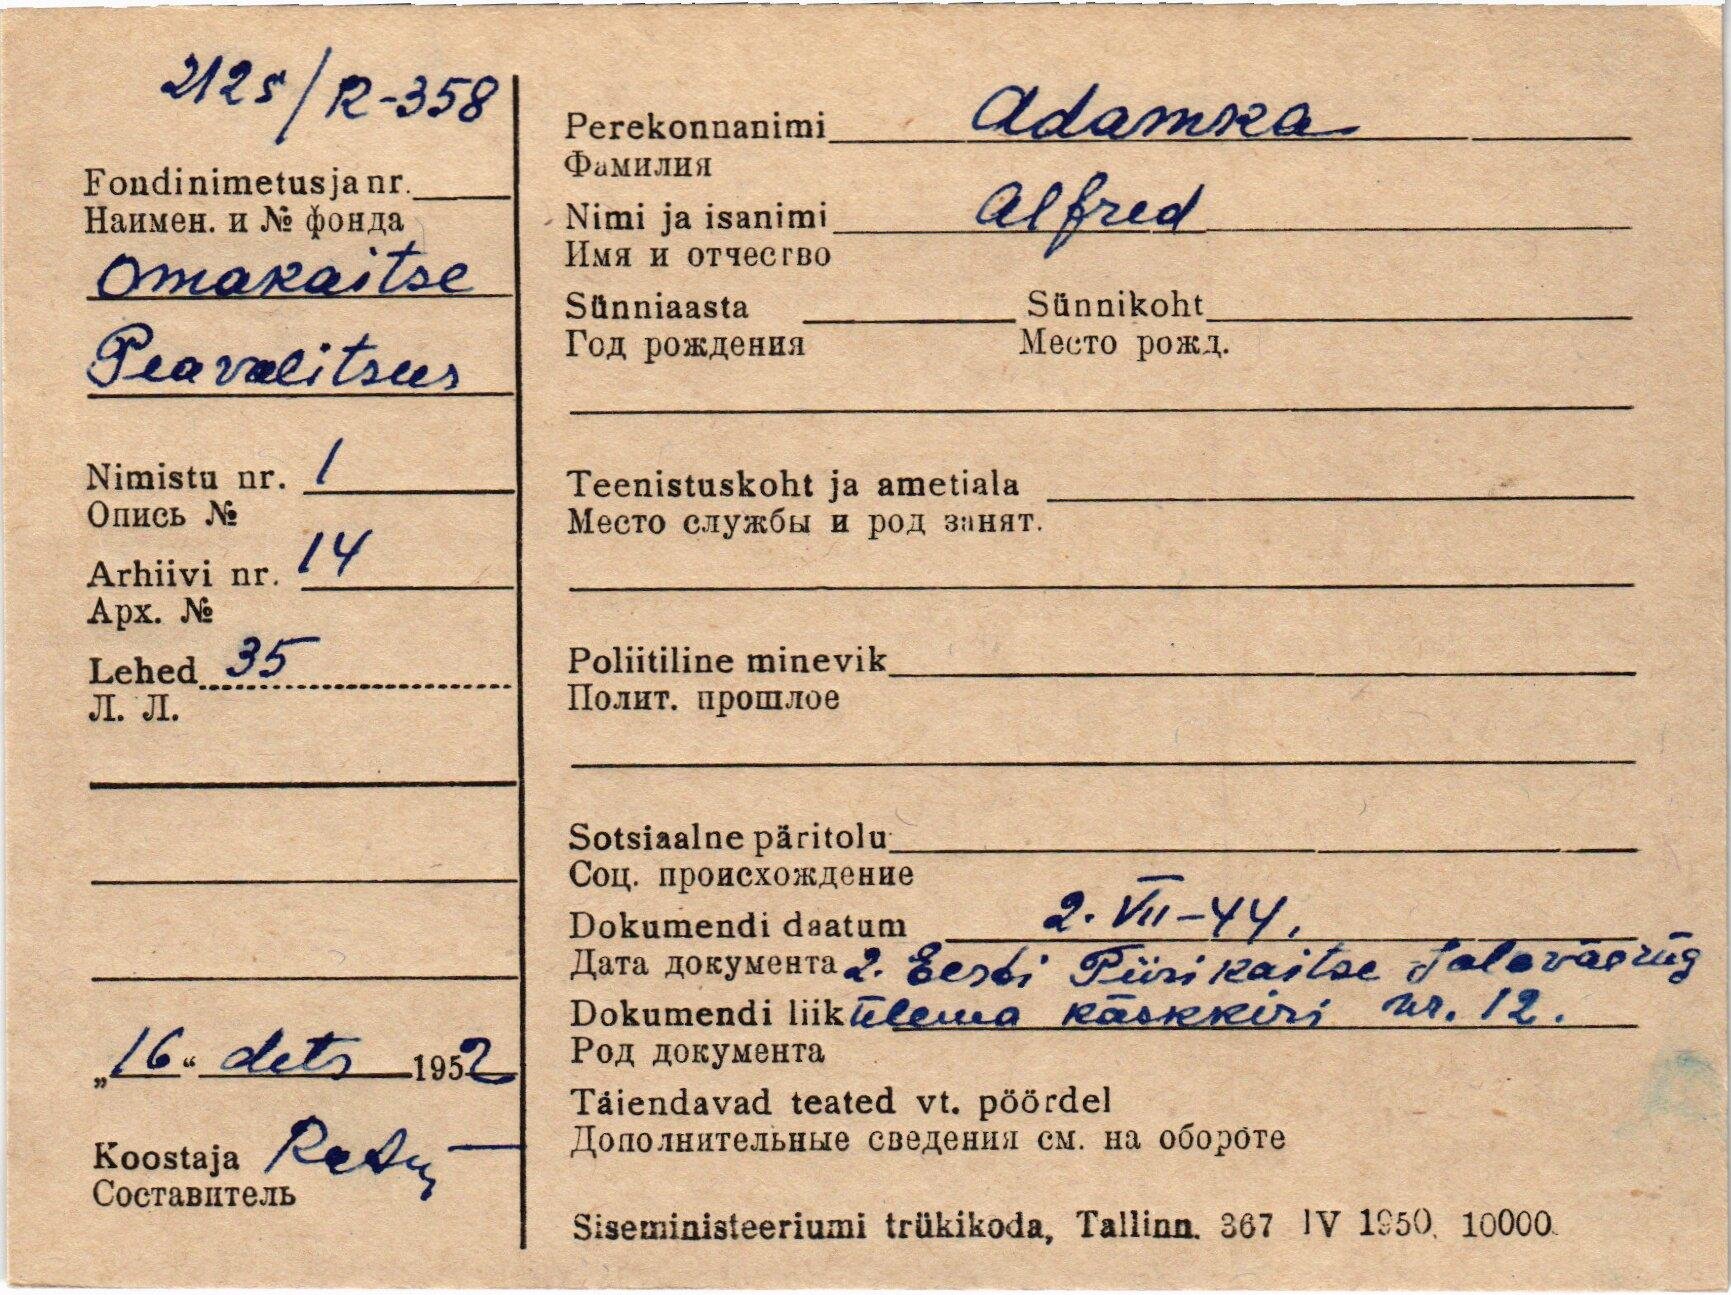 2125/R-358
Fondinimetus ja nr.
Наимен. и № фонда
Omakaitse
Peavalitsus
Nimistu nr. 1
Опись №
Arhiivi nr. 14
Арх. №
Lehed 35
Л. Л.
„16“ dets 1952
Koostaja
Составитель
Perekonnanimi Adamska
Фамилия
Nimi ja isanimi Alfred
Имя и отчество
Sünniaasta Sünnikoht
Год рождения Место рожд.
Teenistuskoht ja ametiala
Место службы и род занят.
Poliitiline minevik
Полит. прошлое
Sotsiaalne päritolu
Соц. происхождение
Dokumendi daatum 2. VII-44.
Дата документа 2. Eesti Piirikaitse Jalaväerüg
Dokumendi liik ülema käskkiri nr. 12.
Род документа
Täiendavad teated vt. pöördel
Дополнительные сведения см. на обороте
Siseministeeriumi trükikoda, Tallinn. 367 IV 1950. 10000.